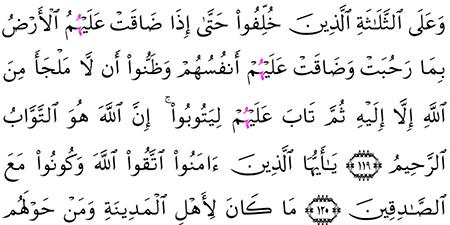 وَعَلَى ٱلثَّلَٰثَةِ ٱلَّذِينَ خُلِّفُوا۟ حَتَّىٰ إِذَا ضَاقَتْ عَلَيْهُمُ ٱلْأَرْضُ
بِمَا رَحُبَتْ وَضَاقَتْ عَلَيْهُمْ أَنفُسُهُمْ وَظَنُّوا۟ أَن لَّا مَلْجَأَ مِنَ
ٱللَّهِ إِلَّا إِلَيْهِ ثُمَّ تَابَ عَلَيْهُمْ لِيَتُوبُوا۟ ۚ إِنَّ ٱللَّهَ هُوَ ٱلتَّوَّابُ
ٱلرَّحِيمُ ﴿١١٩﴾ يَٰأَيُّهَا ٱلَّذِينَ ءَامَنُوا۟ ٱتَّقُوا۟ ٱللَّهَ وَكُونُوا۟ مَعَ
ٱلصَّٰدِقِينَ ﴿١٢٠﴾ مَا كَانَ لِأَهْلِ ٱلْمَدِينَةِ وَمَنْ حَوْلَهُم